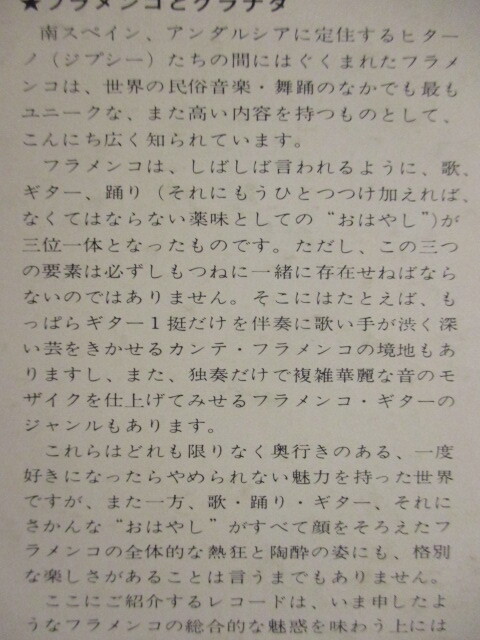 ★フラメンコとグラナダ
南スペイン、アンダルシアに定住するヒター
ノ（ジプシー）たちの間にはぐくまれたフラメ
ンコは、世界の民俗音楽・舞踊のなかでも最も
ユニークな、また高い内容を持つものとして、
こんにち広く知られています。
フラメンコは、しばしば言われるように、歌、
ギター、踊り（それにもうひとつつけ加えれば、
なくてはならない薬味としての“おはやし”)が
三位一体となったものです。ただし、この三つ
の要素は必ずしもつねに一緒に存在せねばなら
ないのではありません。そこにはたとえば、も
っぱらギター１挺だけを伴奏に歌い手が渋く深
い芸をきかせるカンテ・フラメンコの境地もあ
りますし、また、独奏だけで複雑華麗な音のモ
ザイクを仕上げてみせるフラメンコ・ギターの
ジャンルもあります。
これらはどれも限りなく奥行きのある、一度
好きになったらやめられない魅力を持った世界
ですが、また一方、歌・踊り・ギター、それに
さかんな“おはやし”がすべて顔をそろえたフ
ラメンコの全体的な熱狂と陶酔の姿にも、格別
な楽しさがあることは言うまでもありません。
ここにご紹介するレコードは、いま申したよ
うなフラメンコの総合的な魅惑を味わう上には